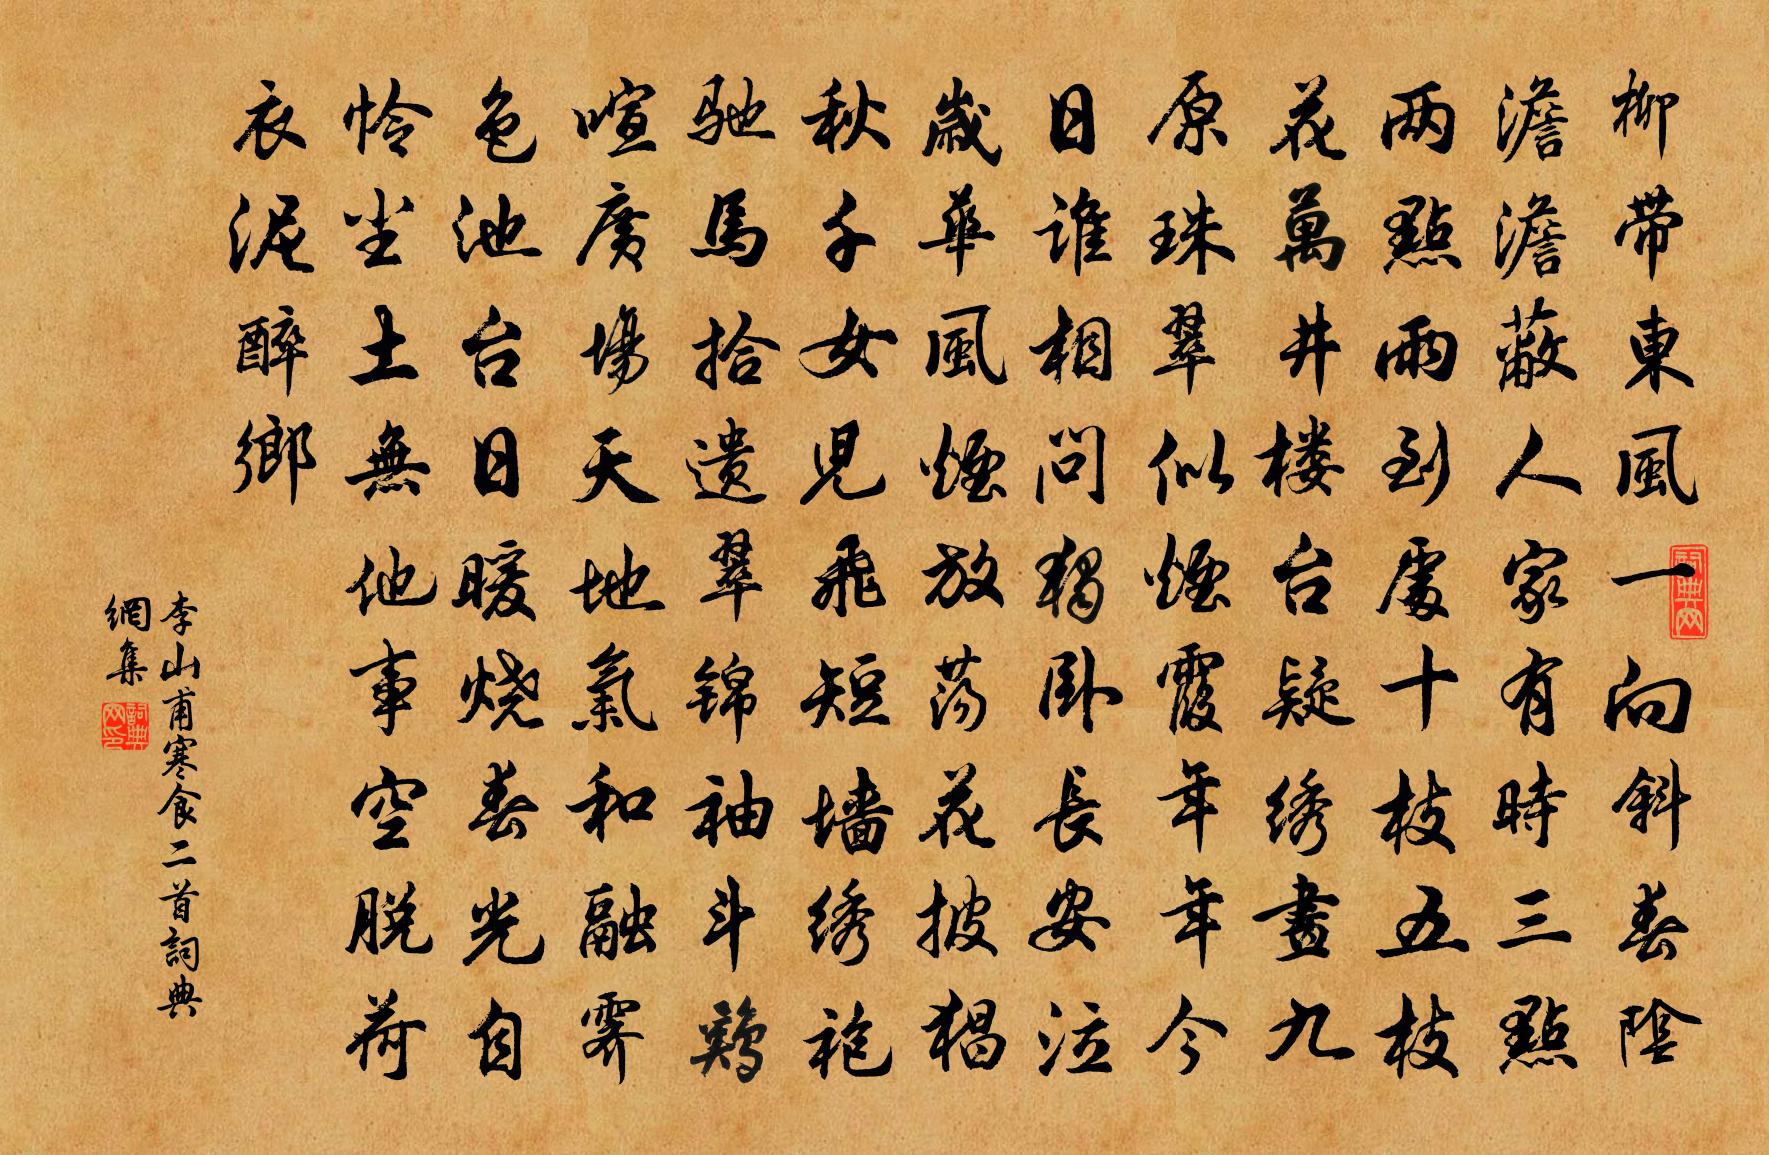 柳带東風一向斜春陰
澹澹蔽人家有時三點
两點雨到處十枝五枝
花萬井楼台疑绣畫九
原珠翠似煙霞年年今
日谁相問獨卧長安泣
歲華風煙放荡花披猖
秋千女兒飛短墙绣袍
馳馬拾遗翠锦袖斗鷄
喧廣場天地氣和融霁
色池台日暖烧春光自
怜尘土無他事空脱荷
衣泥醉鄉
李山甫寒食二首詞典
網集
詞典网
詞典网印